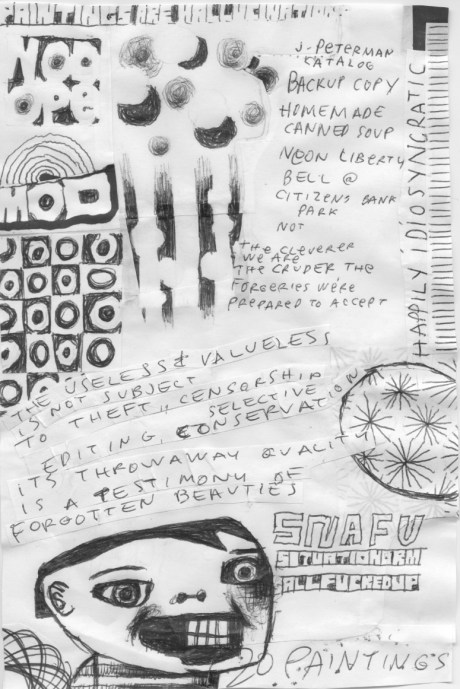 J. PETERMAN
KATALOG
BACKUP COPY
HOMEMADE
CANNED SOUP
NEON LIBERTY
BELL @
CITIZENS BANK
PARK
NOT
THE CLEVERER
WE ARE
THE CRUDER, THE
FORGERIES WE'RE
PREPARED TO ACCEPT
HAPPILY IDIOSYNCRATIC
MOD
THE USELESS & VALUELESS
IS NOT SUBJECT
TO THEFT, CENSORSHIP
SELECTIVE
EDITING, CONSERVATION
ITS THROWAWAY QUALIT
IS A TESTIMONY OF
FORGOTTEN BEAUTIES
SNAFU
SITUATIONORM
ALLFUCKEDUP
20 PAINTINGS